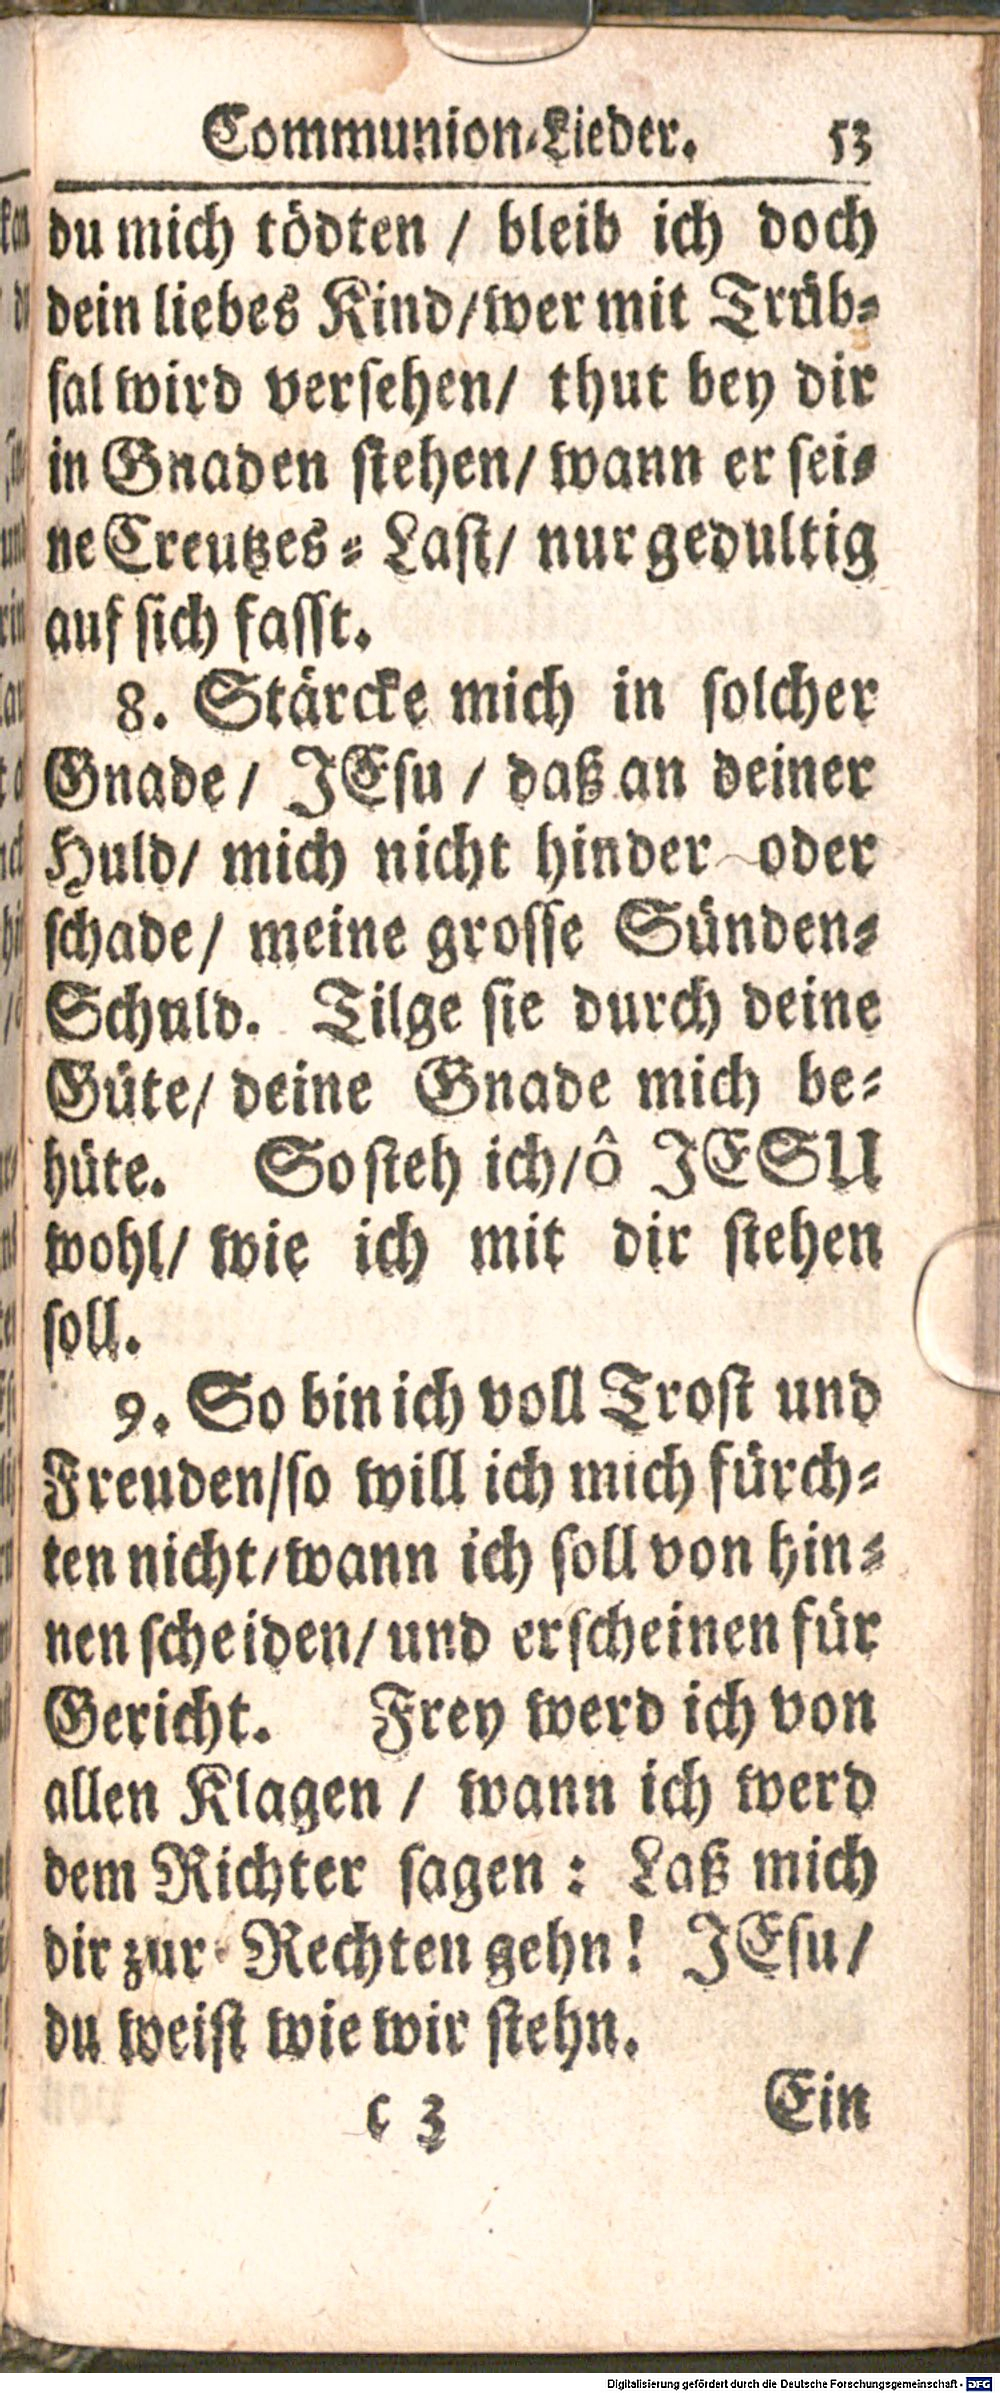 Communion-Lieder. 53
du mich tödten / bleib ich doch
dein liebes Kind/wer mit Trüb-
sal wird versehen/ thut bey dir
in Gnaden stehen/ wann er sei-
ne Creutzes-Last/ nur gedultig
auf sich fasst.
8. Stärcke mich in solcher
Gnade/ JEsu / daß an deiner
Huld/ mich nicht hinder oder
schade/ meine grosse Sünden-
Schuld. Tilge sie durch deine
Güte/ deine Gnade mich be-
hüte. So steh ich/ô JESU
wohl/ wie ich mit dir stehen
soll.
9. So bin ich voll Trost und
Freuden/so will ich mich fürch-
ten nicht/wann ich soll von hin-
nen scheiden/und erscheinen für
Gericht. Frey werd ich von
allen Klagen / wann ich werd
dem Richter sagen : Laß mich
dir zur Rechten gehn! JEsu/
du weist wie wir stehn.
c 3 Ein
Digitalisierung gefördert durch die Deutsche Forschungsgemeinschaft - DFG